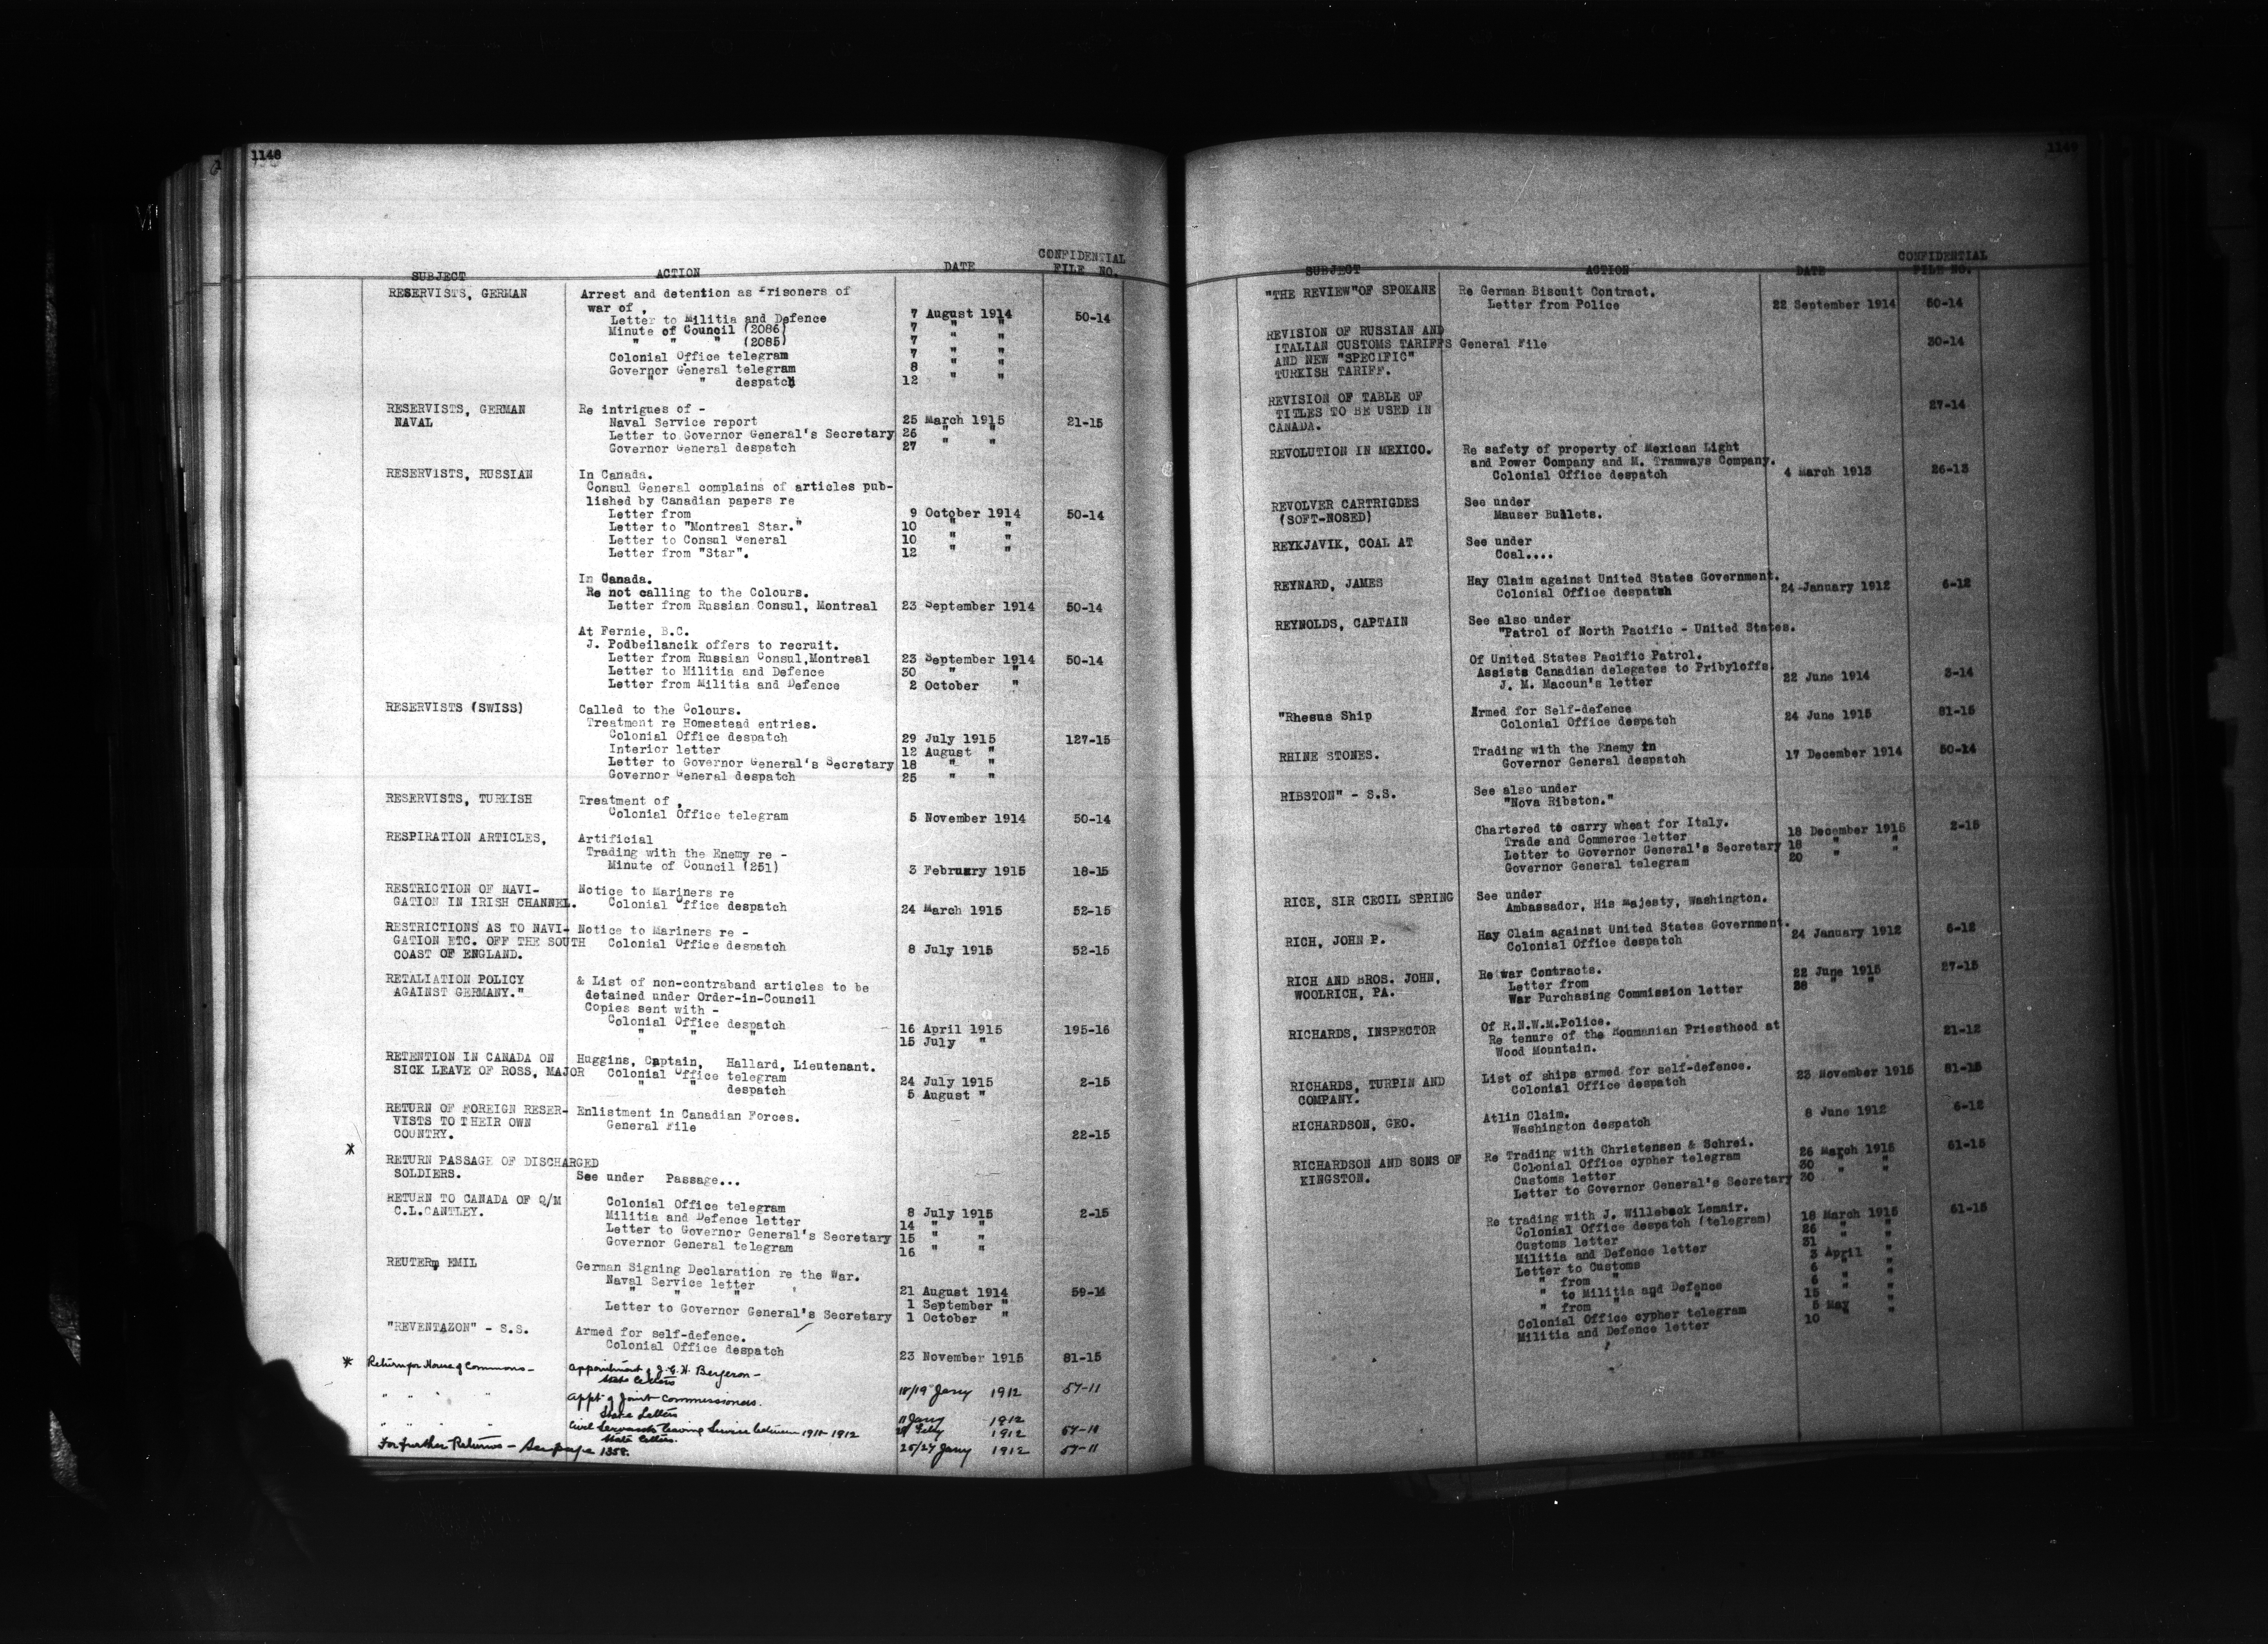 1148
SUBJECT ACTION DATE CONFIDENTIAL FILE NO.
RESERVISTS, GERMAN Arrest and detention as Prisoners of
war of ,
Letter to Militia and Defence 7 August 1914 50-14
Minute of Council (2086) 7 " "
" " " (2085) 7 " "
Colonial Office telegram 7 " "
Governor General telegram 8 " "
" " despatch 12 " "
RESERVISTS, GERMAN Re intrigues of -
NAVAL Naval Service report 25 March 1915 21-15
Letter to Governor General's Secretary 26 " "
Governor General despatch 27 " "
RESERVISTS, RUSSIAN In Canada.
Consul General complains of articles pub-
lished by Canadian papers re
Letter from 9 October 1914 50-14
Letter to "Montreal Star." 10 " "
Letter to Consul General 10 " "
Letter from "Star". 12 " "
In Canada.
Re not calling to the Colours.
Letter from Russian Consul, Montreal 23 September 1914 50-14
At Fernie, B.C.
J. Podbeilancik offers to recruit.
Letter from Russian Consul,Montreal 23 September 1914 50-14
Letter to Militia and Defence 30 " "
Letter from Militia and Defence 2 October "
RESERVISTS (SWISS) Called to the Colours.
Treatment re Homestead entries.
Colonial Office despatch 29 July 1915 127-15
Interior letter 12 August "
Letter to Governor General's Secretary 18 " "
Governor General despatch 25 " "
RESERVISTS, TURKISH Treatment of ,
Colonial Office telegram 5 November 1914 50-14
RESPIRATION ARTICLES, Artificial
Trading with the Enemy re -
Minute of Council (251) 3 February 1915 18-15
RESTRICTION OF NAVI- Notice to Mariners re
GATION IN IRISH CHANNEL. Colonial Office despatch 24 March 1915 52-15
RESTRICTIONS AS TO NAVI- Notice to Mariners re -
GATION ETC. OFF THE SOUTH Colonial Office despatch 8 July 1915 52-15
COAST OF ENGLAND.
RETALIATION POLICY & List of non-contraband articles to be
AGAINST GERMANY." detained under Order-in-Council
Copies sent with -
Colonial Office despatch 16 April 1915 195-16
" " " 15 July "
RETENTION IN CANADA ON Huggins, Captain, Hallard, Lieutenant.
SICK LEAVE OF ROSS, MAJOR Colonial Office telegram 24 July 1915 2-15
" " despatch 5 August "
RETURN OF FOREIGN RESER- Enlistment in Canadian Forces.
VISTS TO THEIR OWN General File 22-15
COUNTRY.
*
RETURN PASSAGE OF DISCHARGED
SOLDIERS. See under Passage...
RETURN TO CANADA OF Q/M Colonial Office telegram 8 July 1915 2-15
C.L.CANTLEY. Militia and Defence letter 14 " "
Letter to Governor General's Secretary 15 " "
Governor General telegram 16 " "
REUTER, EMIL German Signing Declaration re the War.
Naval Service letter 21 August 1914 59-14
" " " 1 September "
Letter to Governor General's Secretary 1 October "
"REVENTAZON" - S.S. Armed for self-defence.
Colonial Office despatch 23 November 1915 81-15
* Return for House of Commons - Appointment of J.G.H. Bergeron -
State Letters 18/19 Jany 1912 57-11
" " " " Appt of Joint Commissioners.
State Letters 11 Jany 1912
" " " " Civil Servants leaving Service between 1911-1912 Feby 1912 57-10
State letters. 25/27 Jany 1912 57-11
For further Returns - See page 1358.
1149
SUBJECT ACTION DATE CONFIDENTIAL FILE NO.
"THE REVIEW"OF SPOKANE Re German Biscuit Contract.
Letter from Police 22 September 1914 50-14
REVISION OF RUSSIAN AND
ITALIAN CUSTOMS TARIFFS General File 30-14
AND NEW "SPECIFIC"
TURKISH TARIFF.
REVISION OF TABLE OF 27-14
TITLES TO BE USED IN
CANADA.
REVOLUTION IN MEXICO. Re safety of property of Mexican Light
and Power Company and M. Tramways Company.
Colonial Office despatch 4 March 1913 26-13
REVOLVER CARTRIGDES See under
(SOFT-NOSED) Mauser Bullets.
REYKJAVIK, COAL AT See under
Coal....
REYNARD, JAMES Hay Claim against United States Government.
Colonial Office despatch 24 January 1912 6-12
REYNOLDS, CAPTAIN See also under
"Patrol of North Pacific - United States.
Of United States Pacific Patrol.
Assists Canadian delegates to Pribyloffs.
J. M. Macoun's letter 22 June 1914 3-14
"Rhesus Ship Armed for Self-defence
Colonial Office despatch 24 June 1915 81-15
RHINE STONES. Trading with the Enemy in
Governor General despatch 17 December 1914 50-14
RIBSTON" - S.S. See also under
"Nova Ribston."
Chartered to carry wheat for Italy.
Trade and Commerce letter 18 December 1915 2-15
Letter to Governor General's Secretary 18 " "
Governor General telegram 20
RICE, SIR CECIL SPRING See under
Ambassador, His Majesty, Washington.
RICH, JOHN P. Hay Claim against United States Government.
Colonial Office despatch 24 January 1912 6-12
RICH AND BROS. JOHN, Re war Contracts.
WOOLRICH, PA. Letter from 22 June 1915 27-15
War Purchasing Commission letter 28 " "
RICHARDS, INSPECTOR Of R.N.W.M.Police.
Re tenure of the Roumanian Priesthood at 21-12
Wood Mountain.
RICHARDS, TURPIN AND List of ships armed for self-defence.
COMPANY. Colonial Office despatch 23 November 1915 81-15
RICHARDSON, GEO. Atlin Claim.
Washington despatch 8 June 1912 6-12
RICHARDSON AND SONS OF Re Trading with Christensen & Schrei.
KINGSTON. Colonial Office cypher telegram 26 March 1915 61-15
Customs letter 30 " "
Letter to Governor General's Secretary 30
Re trading with J. Willebeck Lemair.
Colonial Office despatch (telegram) 18 March 1915 61-15
Customs letter 26 " "
Militia and Defence letter 31 " "
Letter to Customs 3 April "
" from " 6 " "
" to Militia and Defence 6 " "
" from " " " 15 " "
Colonial Office cypher telegram 5 May "
Militia and Defence letter 10